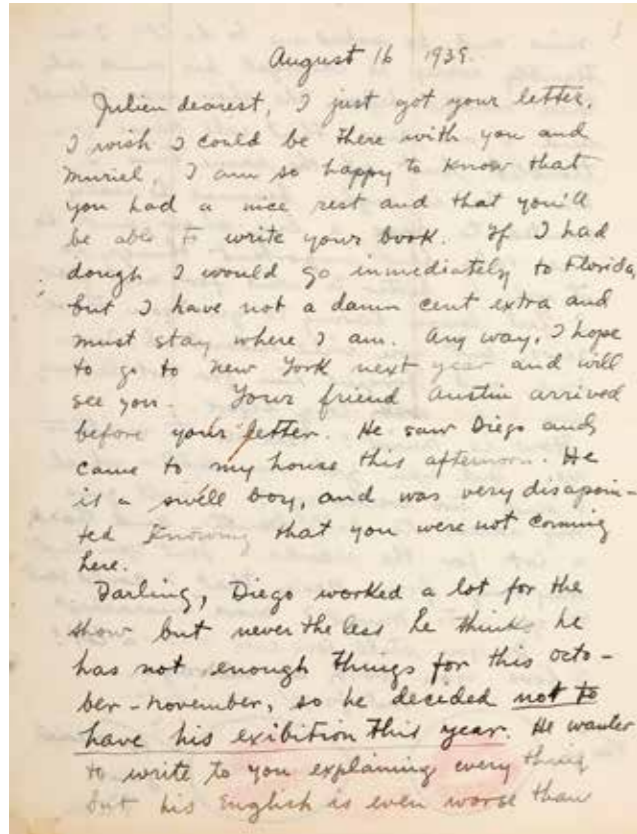 August 16 1939.
Julien dearest, I just got your letter,
I wish I could be there with you and
Muriel, I am so happy to know that
you had a nice rest and that you'll
be able to write your book. If I had
dough I would go inmediately to Florida,
but I have not a damn cent extra and
must stay where I am. Any way, I hope
to go to New York next year and will
see you. Your friend Austin arrived
before your letter. He saw Diego and
came to my house this afternoon. He
is a swell boy, and was very disapoin-
ted knowing that you were not coming
here.
Darling, Diego worked a lot for the
show but never the less he thinks he
has not enough things for this octo-
ber-november, so he decided not to
have his exibition this year. He wanted
to write to you explaining every thing
but his English is even worse than